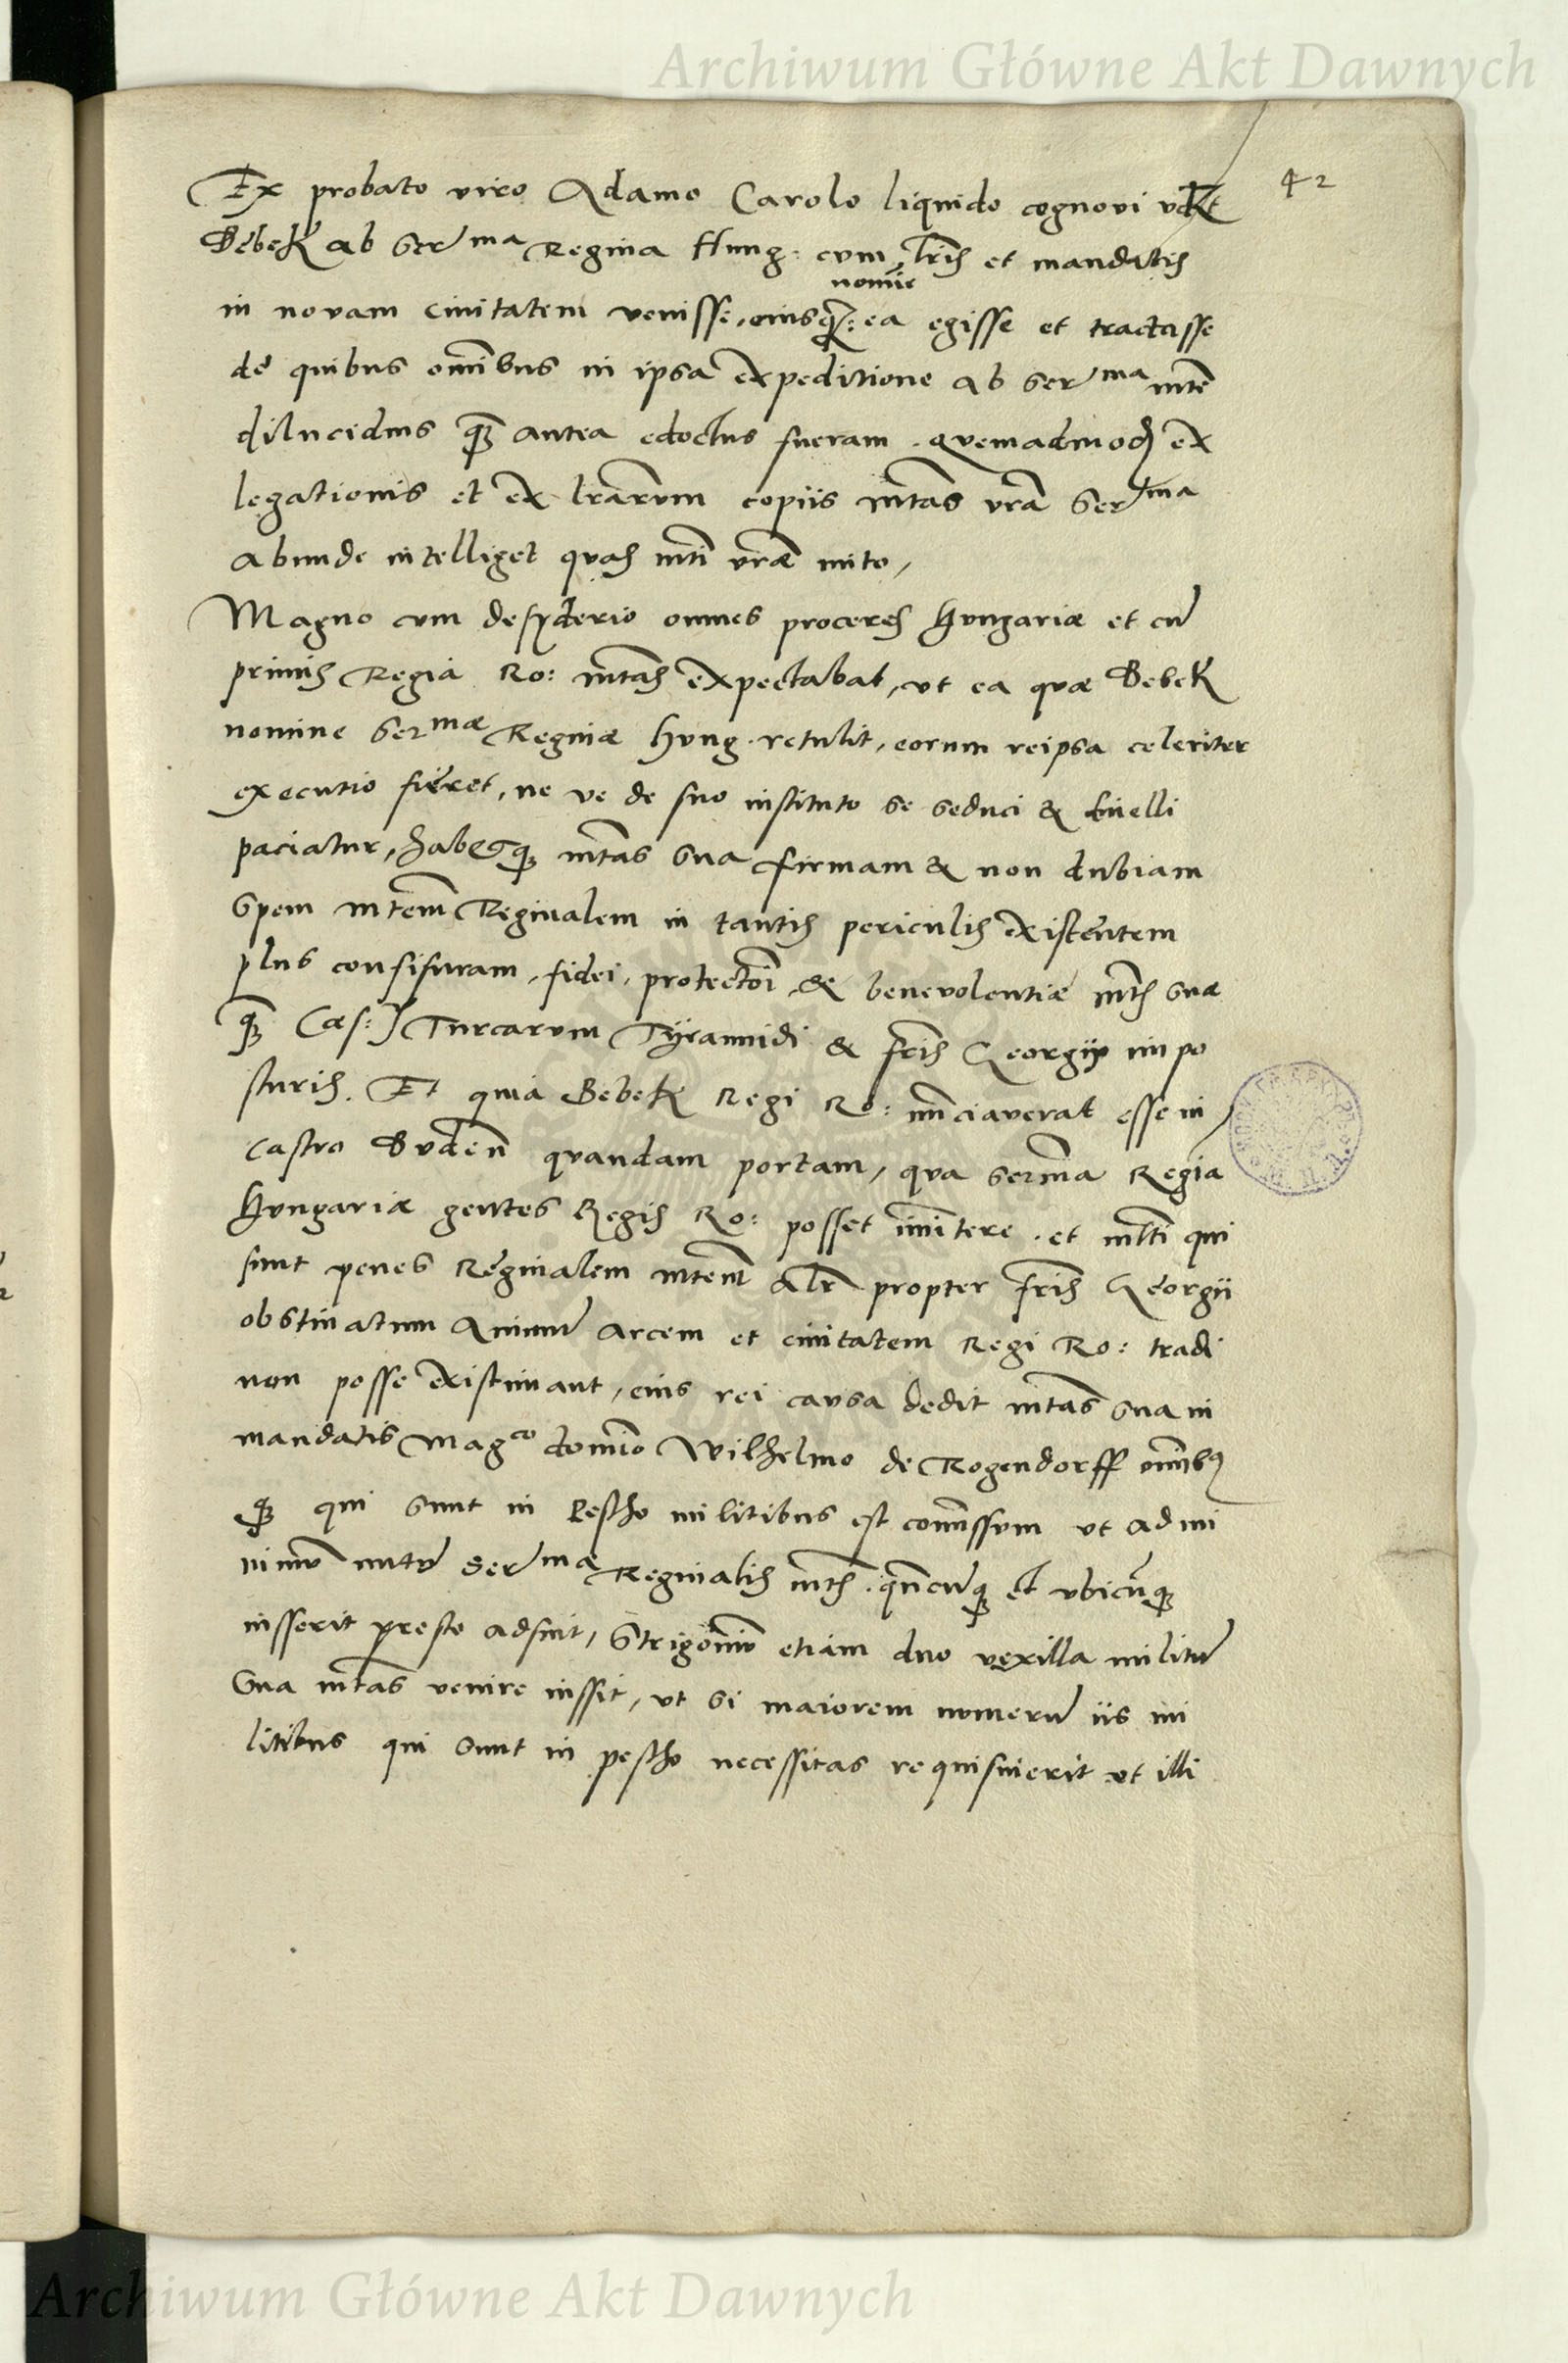 Archiwum Główne Akt Dawnych
42
Ex probato viro Adamo Carolo liquido cognovi
Bebek ab Serma Regina Hung: cum lris et mandatis
nomie
in novam civitatem venisse, eiusq: ea egisse et tractasse
de quibus omibus in ipsa expeditione ab Serma mte
dilucidius q3 antea edoctus fueram. quemadmod ex
legationis et ex lrarum copiis mtas vra Serma
abunde intelliget quas mti vrae mito,
Magno cum desyderio omnes proceres Hungariae et cu
primis Regia Ro: mtas expectabat, ut ea quae Bebek
nomine Sermae Reginae Hung. retulit, eorum reipsa celeriter
executio fieret, ne ve de suo instituto se seduci & divelli
paciatur, habetq3 mtas sua firmam & non dubiam
spem mtem Reginalem in tantis periculis existentem
plus confisuram, fidei, protectoi & benevolentiae mtis suae
q3 Caes: Turcarum Tyrannidi & fris Georgii impo
sturis. Et quia Bebek Regi Ro: nunciaverat esse in
Castro Buden quandam portam, qua serma Regia
Hungariae gentes Regis Ro: posset imitere. et mlti qui
sunt penes Reginalem mtem alr propter fris Georgii
obstinatum animu arcem et civitatem Regi Ro: tradi
non posse existimant, eius rei causa dedit mtas sua in
mandatis Magco domio Wilhelmo de Rogendorff omibus
q3 qui sunt in Pestho militibus est comissum ut ad mi
nimu nutu Sermae Reginalis mtis. qncuq3 et ubicuq3
iusserit presto adsint, Strigoniu etiam duo vexilla militu
Sua mtas venire iussit, ut si maiorem numeru iis mi
litibus qui sunt in pestho necessitas requisiuerit ut illi
Archiwum Główne Akt Dawnych